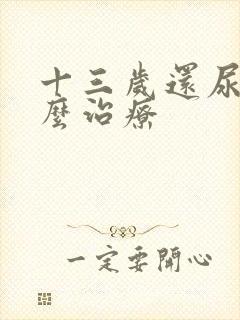 十三歲還尿
麼治療
一定要開心